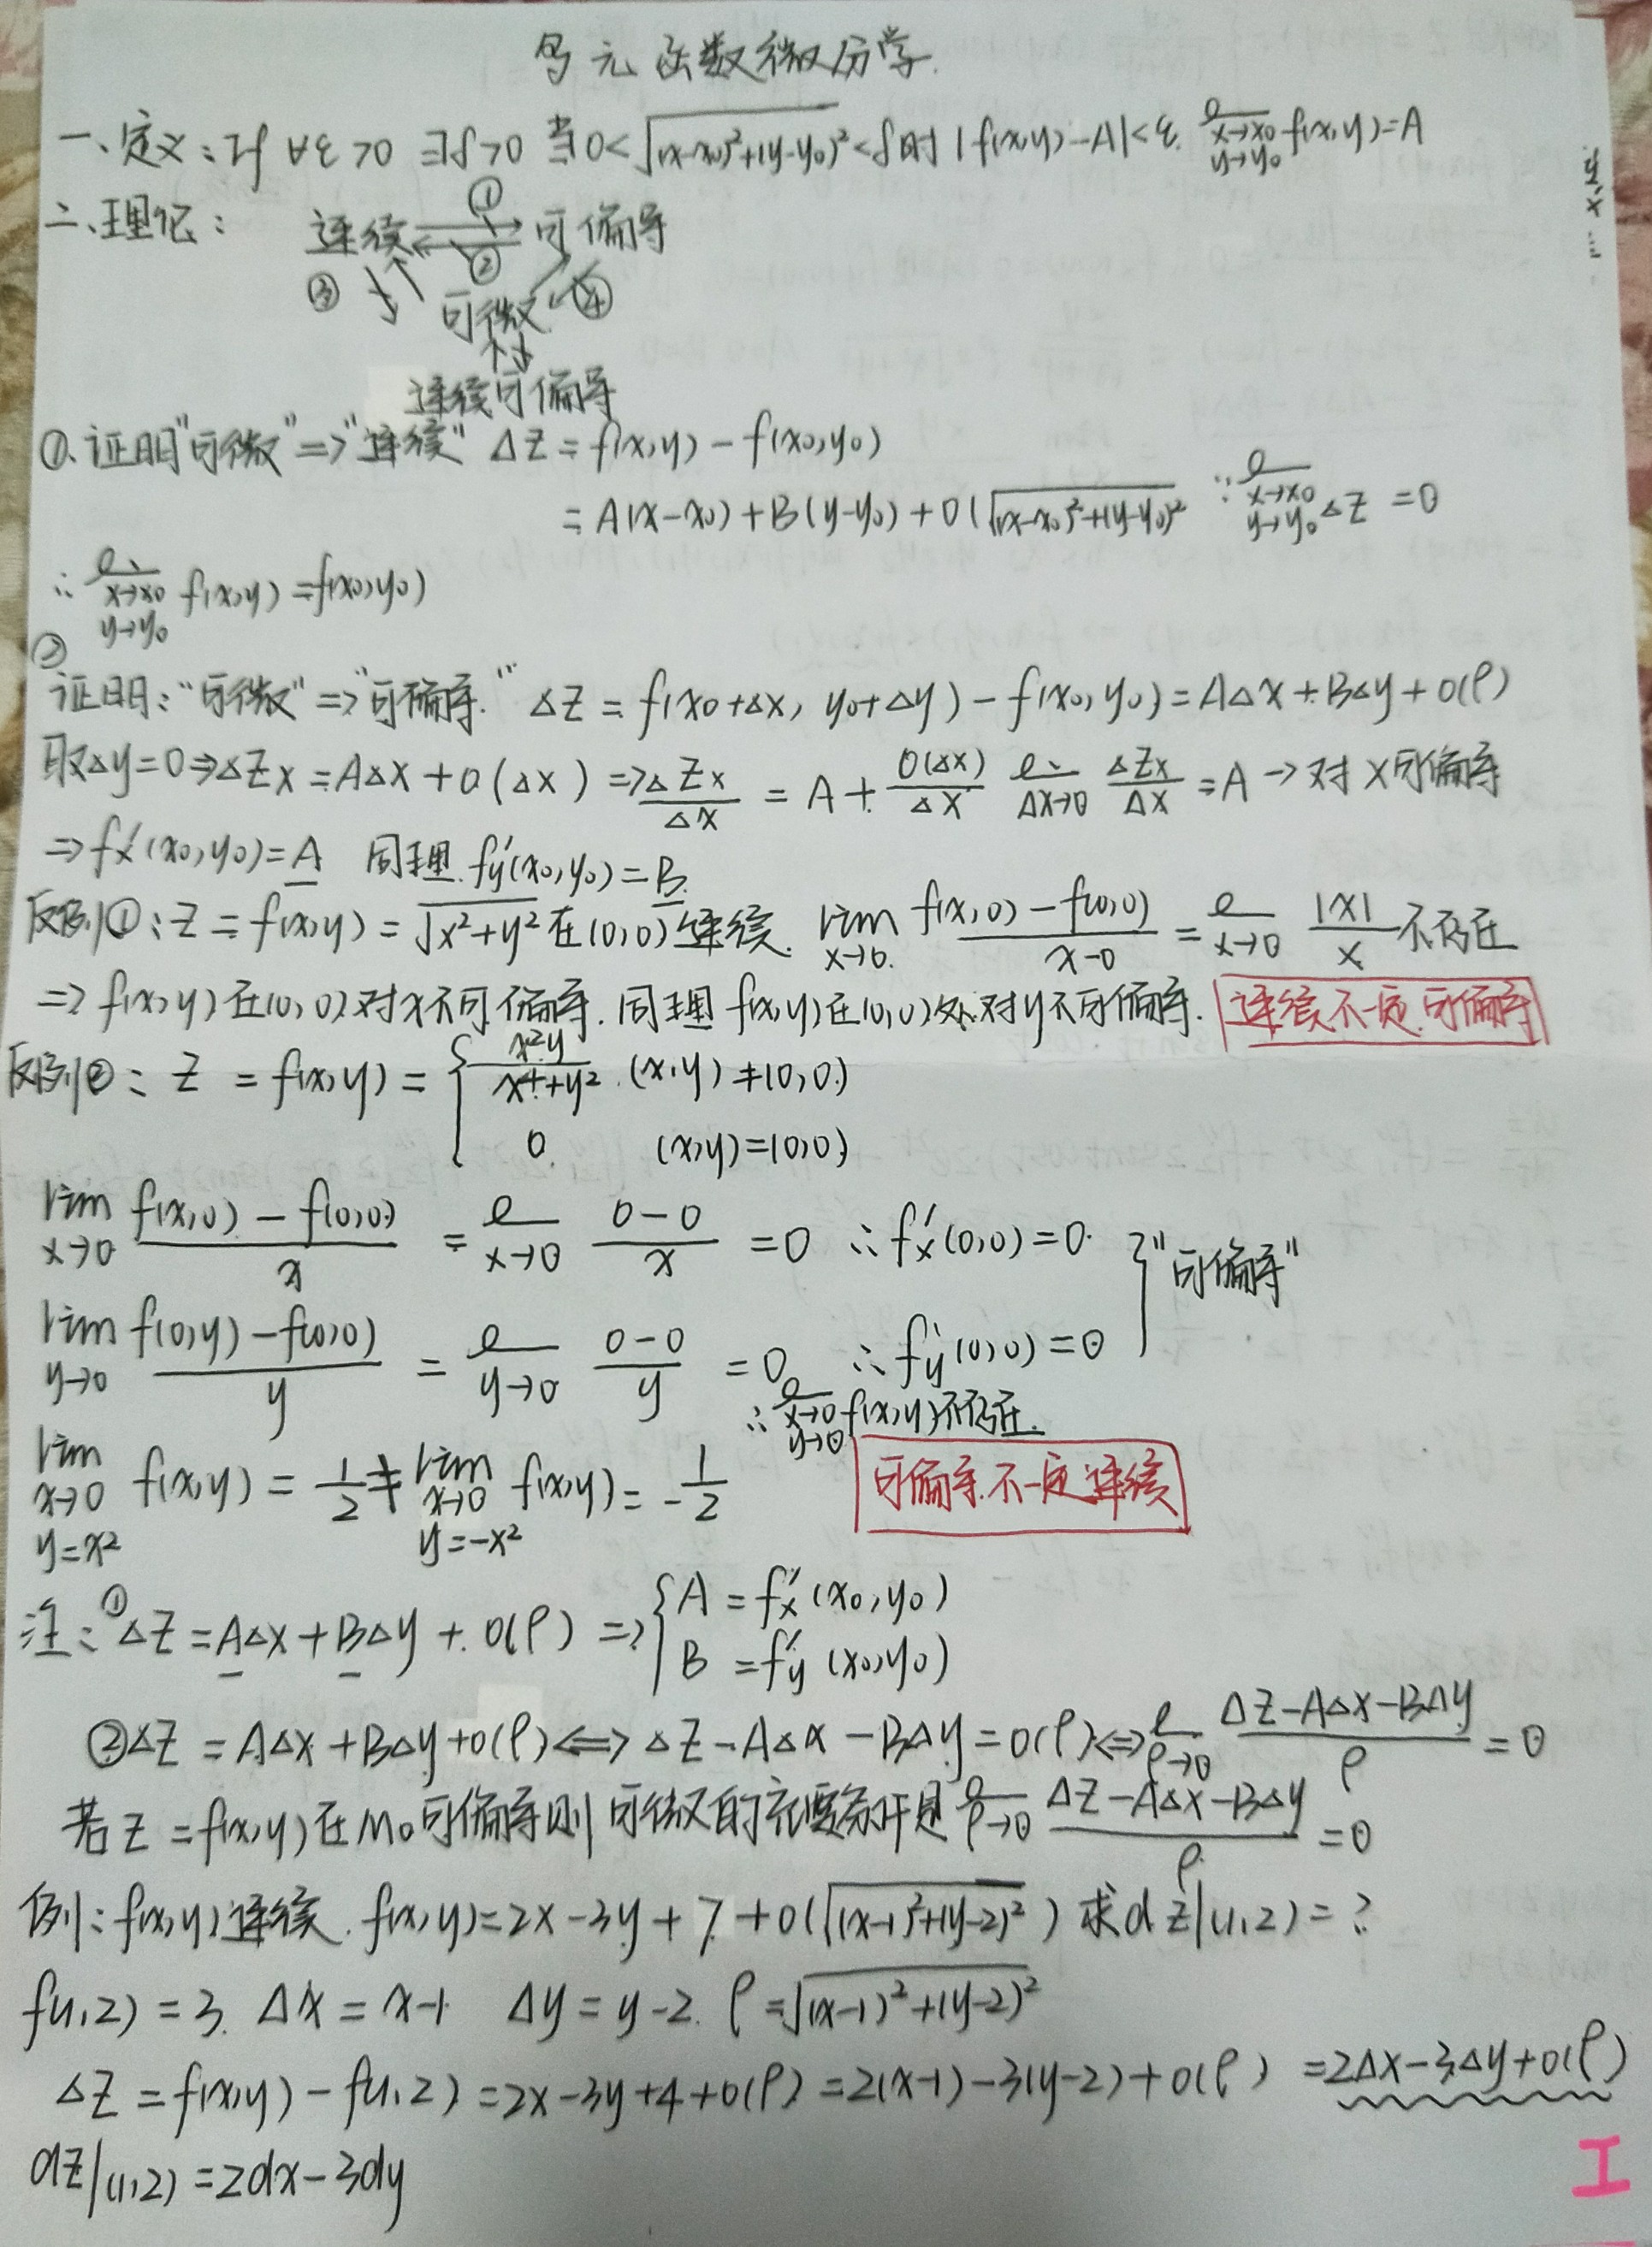 多元函数微分学.
一、定义:If ∀ε>0 ∃δ>0 当0<√(x-x₀)²+(y-y₀)²<δ时 |f(x,y)-A|<ε. lim x→x₀ y→y₀ f(x,y)=A
二、理论:
① 
连续 可偏导
②
③ 可微 ④
连续可偏导
①.证明"可微"=>"连续" ΔZ=f(x,y)-f(x₀,y₀)
=A(x-x₀)+B(y-y₀)+o(√(x-x₀)²+(y-y₀)² ∵ lim x→x₀ y→y₀ ΔZ=0
∴ lim x→x₀ y→y₀ f(x,y)=f(x₀,y₀)
②
证明:"可微"=>"可偏导." ΔZ=f(x₀+Δx, y₀+Δy)-f(x₀,y₀)=AΔx+BΔy+o(ρ)
取Δy=0⇒ΔZx=AΔx+o(Δx)=>ΔZx/Δx=A+o(Δx)/Δx lim Δx→0 ΔZx/Δx=A→对x可偏导
⇒fx'(x₀,y₀)=A 同理.fy'(x₀,y₀)=B.
反例①:Z=f(x,y)=√x²+y² 在(0,0)连续. lim x→0. f(x,0)-f(0,0)/x-0 = lim x→0 |x|/x 不存在
=>f(x,y)在(0,0)对x不可偏导.同理f(x,y)在(0,0)处对y不可偏导. 连续不一定可偏导
反例②:Z=f(x,y)={ x²y/x⁴+y² (x,y)≠(0,0)
0. (x,y)=(0,0)
lim x→0 f(x,0)-f(0,0)/x = lim x→0 0-0/x =0 ∴fx'(0,0)=0. }"可偏导"
lim y→0 f(0,y)-f(0,0)/y = lim y→0 0-0/y =0 ∴fy'(0,0)=0
∴ lim x→0 y→0 f(x,y)不存在.
lim x→0 y=x² f(x,y)=1/2≠lim x→0 y=-x² f(x,y)=-1/2 可偏导不一定连续
注:①ΔZ=AΔx+BΔy+o(ρ)=>{A=fx'(x₀,y₀)
B=fy'(x₀,y₀)
②ΔZ=AΔx+BΔy+o(ρ)<=>ΔZ-AΔx-BΔy=o(ρ)<=>lim ρ→0 ΔZ-AΔx-BΔy/ρ=0
若Z=f(x,y)在M₀可偏导则可微的充要条件是 lim ρ→0 ΔZ-AΔx-BΔy/ρ=0
例:f(x,y)连续.f(x,y)=2x-3y+7+o(√(x-1)²+(y-2)²)求dz|(1,2)=?
f(1,2)=3. Δx=x-1 Δy=y-2. ρ=√(x-1)²+(y-2)²
ΔZ=f(x,y)-f(1,2)=2x-3y+4+o(ρ)=2(x-1)-3(y-2)+o(ρ) =2Δx-3Δy+o(ρ)
dz|(1,2)=2dx-3dy
I